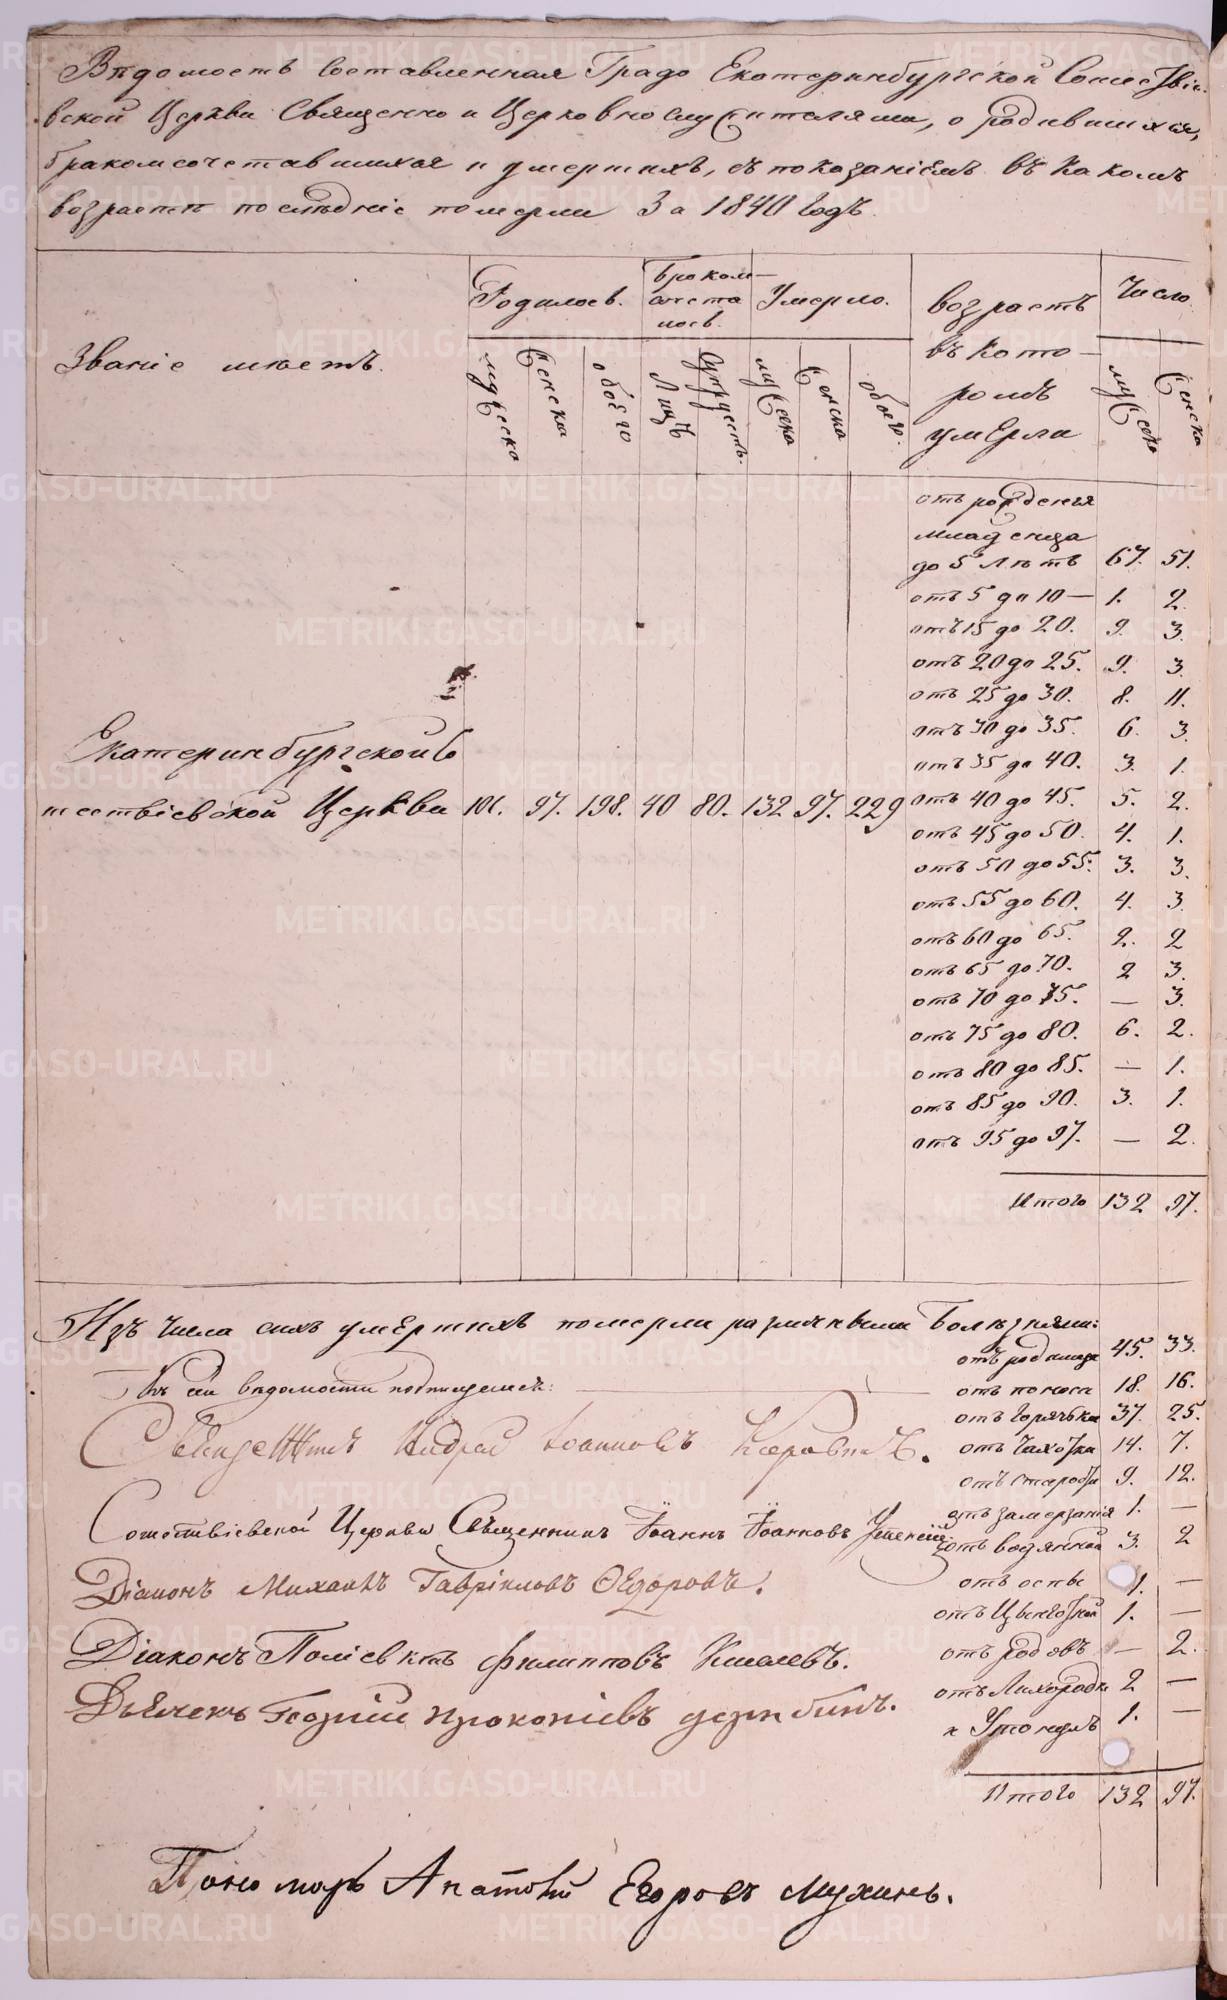 Вѣдомость составленная Градо Екатеринбургской Сошествіе-
вской Церкви Священно и Церковнослужителями, о родившихся,
бракомсочетавшихся и умершихъ, съ показаніемъ въ какомъ
возрастѣ послѣдніе померли За 1840 годъ.
Званіе мѣстъ.
Родилось.
Браком-
сочета
лось.
Умерло.
возрастъ
въ кото-
ромъ
умерли
Число
мужеска
женска
обоего
Лицъ
супружеств.
мужеска
женска
обоего.
мужеска
женска
отъ рожденія
младенца
до 5 лѣтъ 67. 51.
отъ 5 до 10 — 1. 2.
отъ 15 до 20. 9. 3.
отъ 20 до 25. 9. 3.
отъ 25 до 30. 8. 11.
отъ 30 до 35. 6. 3.
отъ 35 до 40. 3. 1.
Екатеринбургской Со
шествіевской Церкви 101. 97. 198. 40 80. 132 97. 229
отъ 40 до 45. 5. 2.
отъ 45 до 50. 4. 1.
отъ 50 до 55. 3. 3.
отъ 55 до 60. 4. 3.
отъ 60 до 65. 2. 2
отъ 65 до 70. 2 3.
отъ 70 до 75. — 3.
отъ 75 до 80. 6. 2.
отъ 80 до 85. — 1.
отъ 85 до 90. 3. 1.
отъ 95 до 97. — 2.
Итого 132 97.
Изъ числа сихъ умершихъ померли различными Болѣзнями:
отъ родимца 45. 33.
Къ сей вѣдомости подпишемся:
отъ поноса 18. 16.
отъ горячьки 37. 25.
Священникъ Андрей Іоанновъ Кировъ.
отъ чахотки 14. 7.
отъ старости 9. 12.
Сошествіевской Церкви Священникъ Іоаннъ Іоанновъ Успенскій
отъ замерзанія 1. —
отъ водянной 3. 2
Діаконъ Михаилъ Гавріиловъ Ѳедоровъ.
отъ оспы 1. —
отъ Цынготной 1. —
Діаконъ Поліевктъ Филипповъ Киселевъ.
отъ родовъ — 2.
отъ Лихорадки 2 —
Дьячекъ Георгій Прокопіевъ Дерябинъ.
и Утонулъ 1. —
Итого 132 97.
Пономарь Анатолій Егоровъ Мухинъ.
METRIKI.GASO-URAL.RU